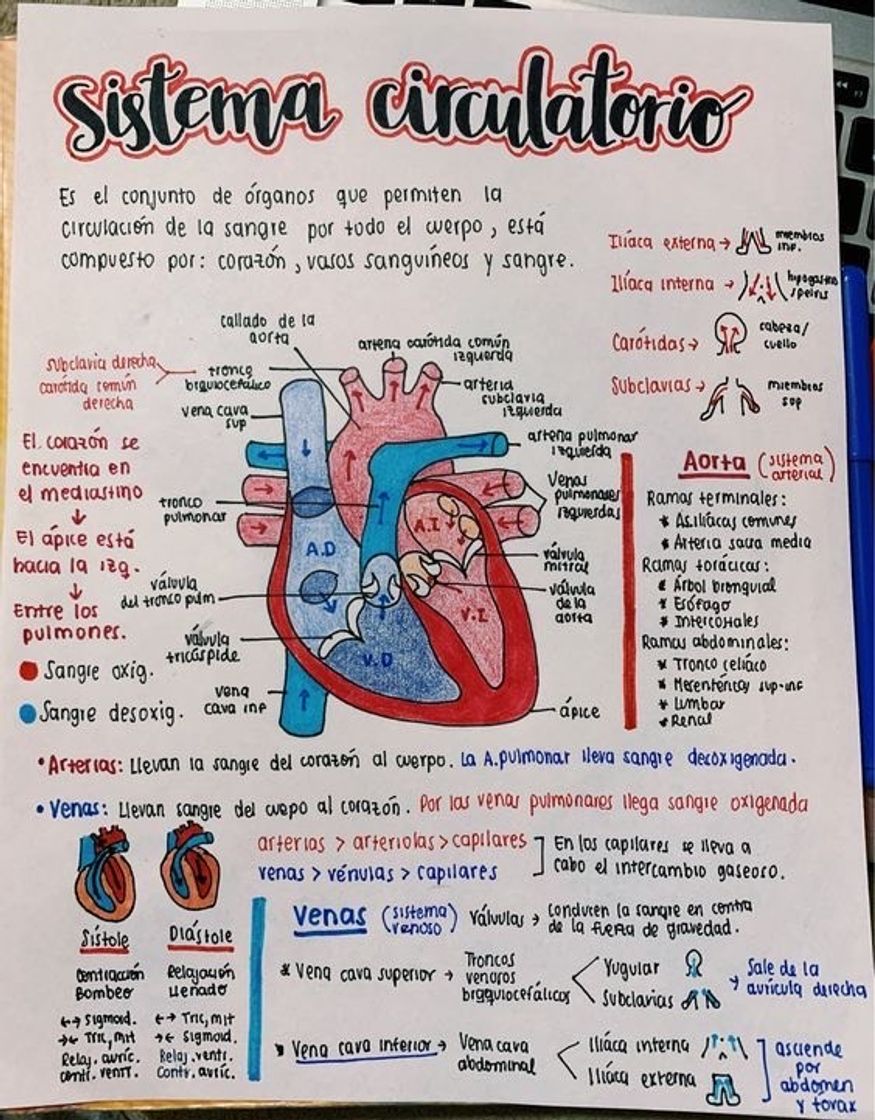 Sistema circulatorio
Es el conjunto de órganos que permiten la
circulación de la sangre por todo el cuerpo, está
compuesto por: corazón, vasos sanguíneos y sangre.
Ilíaca externa → miembros
inf.
Ilíaca interna →
Carótidas → cabeza/
cuello
Subclavias → miembros
sup
callado de la
aorta
arteria carótida común
izquierda
subclavia derecha
carótida común
derecha
tronco
braquiocefálico
arteria
subclavia
izquierda
vena cava
sup
arteria pulmonar
izquierda
El corazón se
encuentra en
el mediastino
↓
El ápice está
hacia la izq.
↓
Entre los
pulmones.
tronco
pulmonar
Venas
pulmonares
izquierdas
A.D
A.I
V.D
V.I
válvula
mitral
válvula
del tronco pulm
válvula
de la
aorta
válvula
tricúspide
Sangre oxig.
Sangre desoxig.
vena
cava inf
ápice
Aorta (sistema
arterial)
Ramas terminales:
* As.ilíacas comunes
* Arteria sacra media
Ramas torácicas:
* Árbol bronquial
* Esófago
* Intercostales
Ramas abdominales:
* Tronco celíaco
* Mesentéricas sup-inf
* Lumbar
* Renal
• Arterias: Llevan la sangre del corazón al cuerpo. La A.pulmonar lleva sangre desoxigenada.
• Venas: Llevan sangre del cuepo al corazón. Por las venas pulmonares llega sangre oxigenada
arterias > arteriolas > capilares
venas > vénulas > capilares
En los capilares se lleva a
cabo el intercambio gaseoso.
Sístole
Contracción
Bombeo
←→ Sigmoid.
→← Tric, mit
Relaj. auríc.
Contr. ventr.
Diástole
Relajación
Llenado
←→ Tric, mit
→← Sigmoid.
Relaj. ventr.
Contr. auríc.
Venas (sistema
venoso)
Válvulas → conducen la sangre en contra
de la fuerza de gravedad.
* Vena cava superior → Troncos
venosos
braquiocefálicos
Yugular
Subclavias
→ Sale de la
aurícula derecha
* Vena cava inferior → Vena cava
abdominal
Ilíaca interna
Ilíaca externa
asciende
por
abdomen
y torax